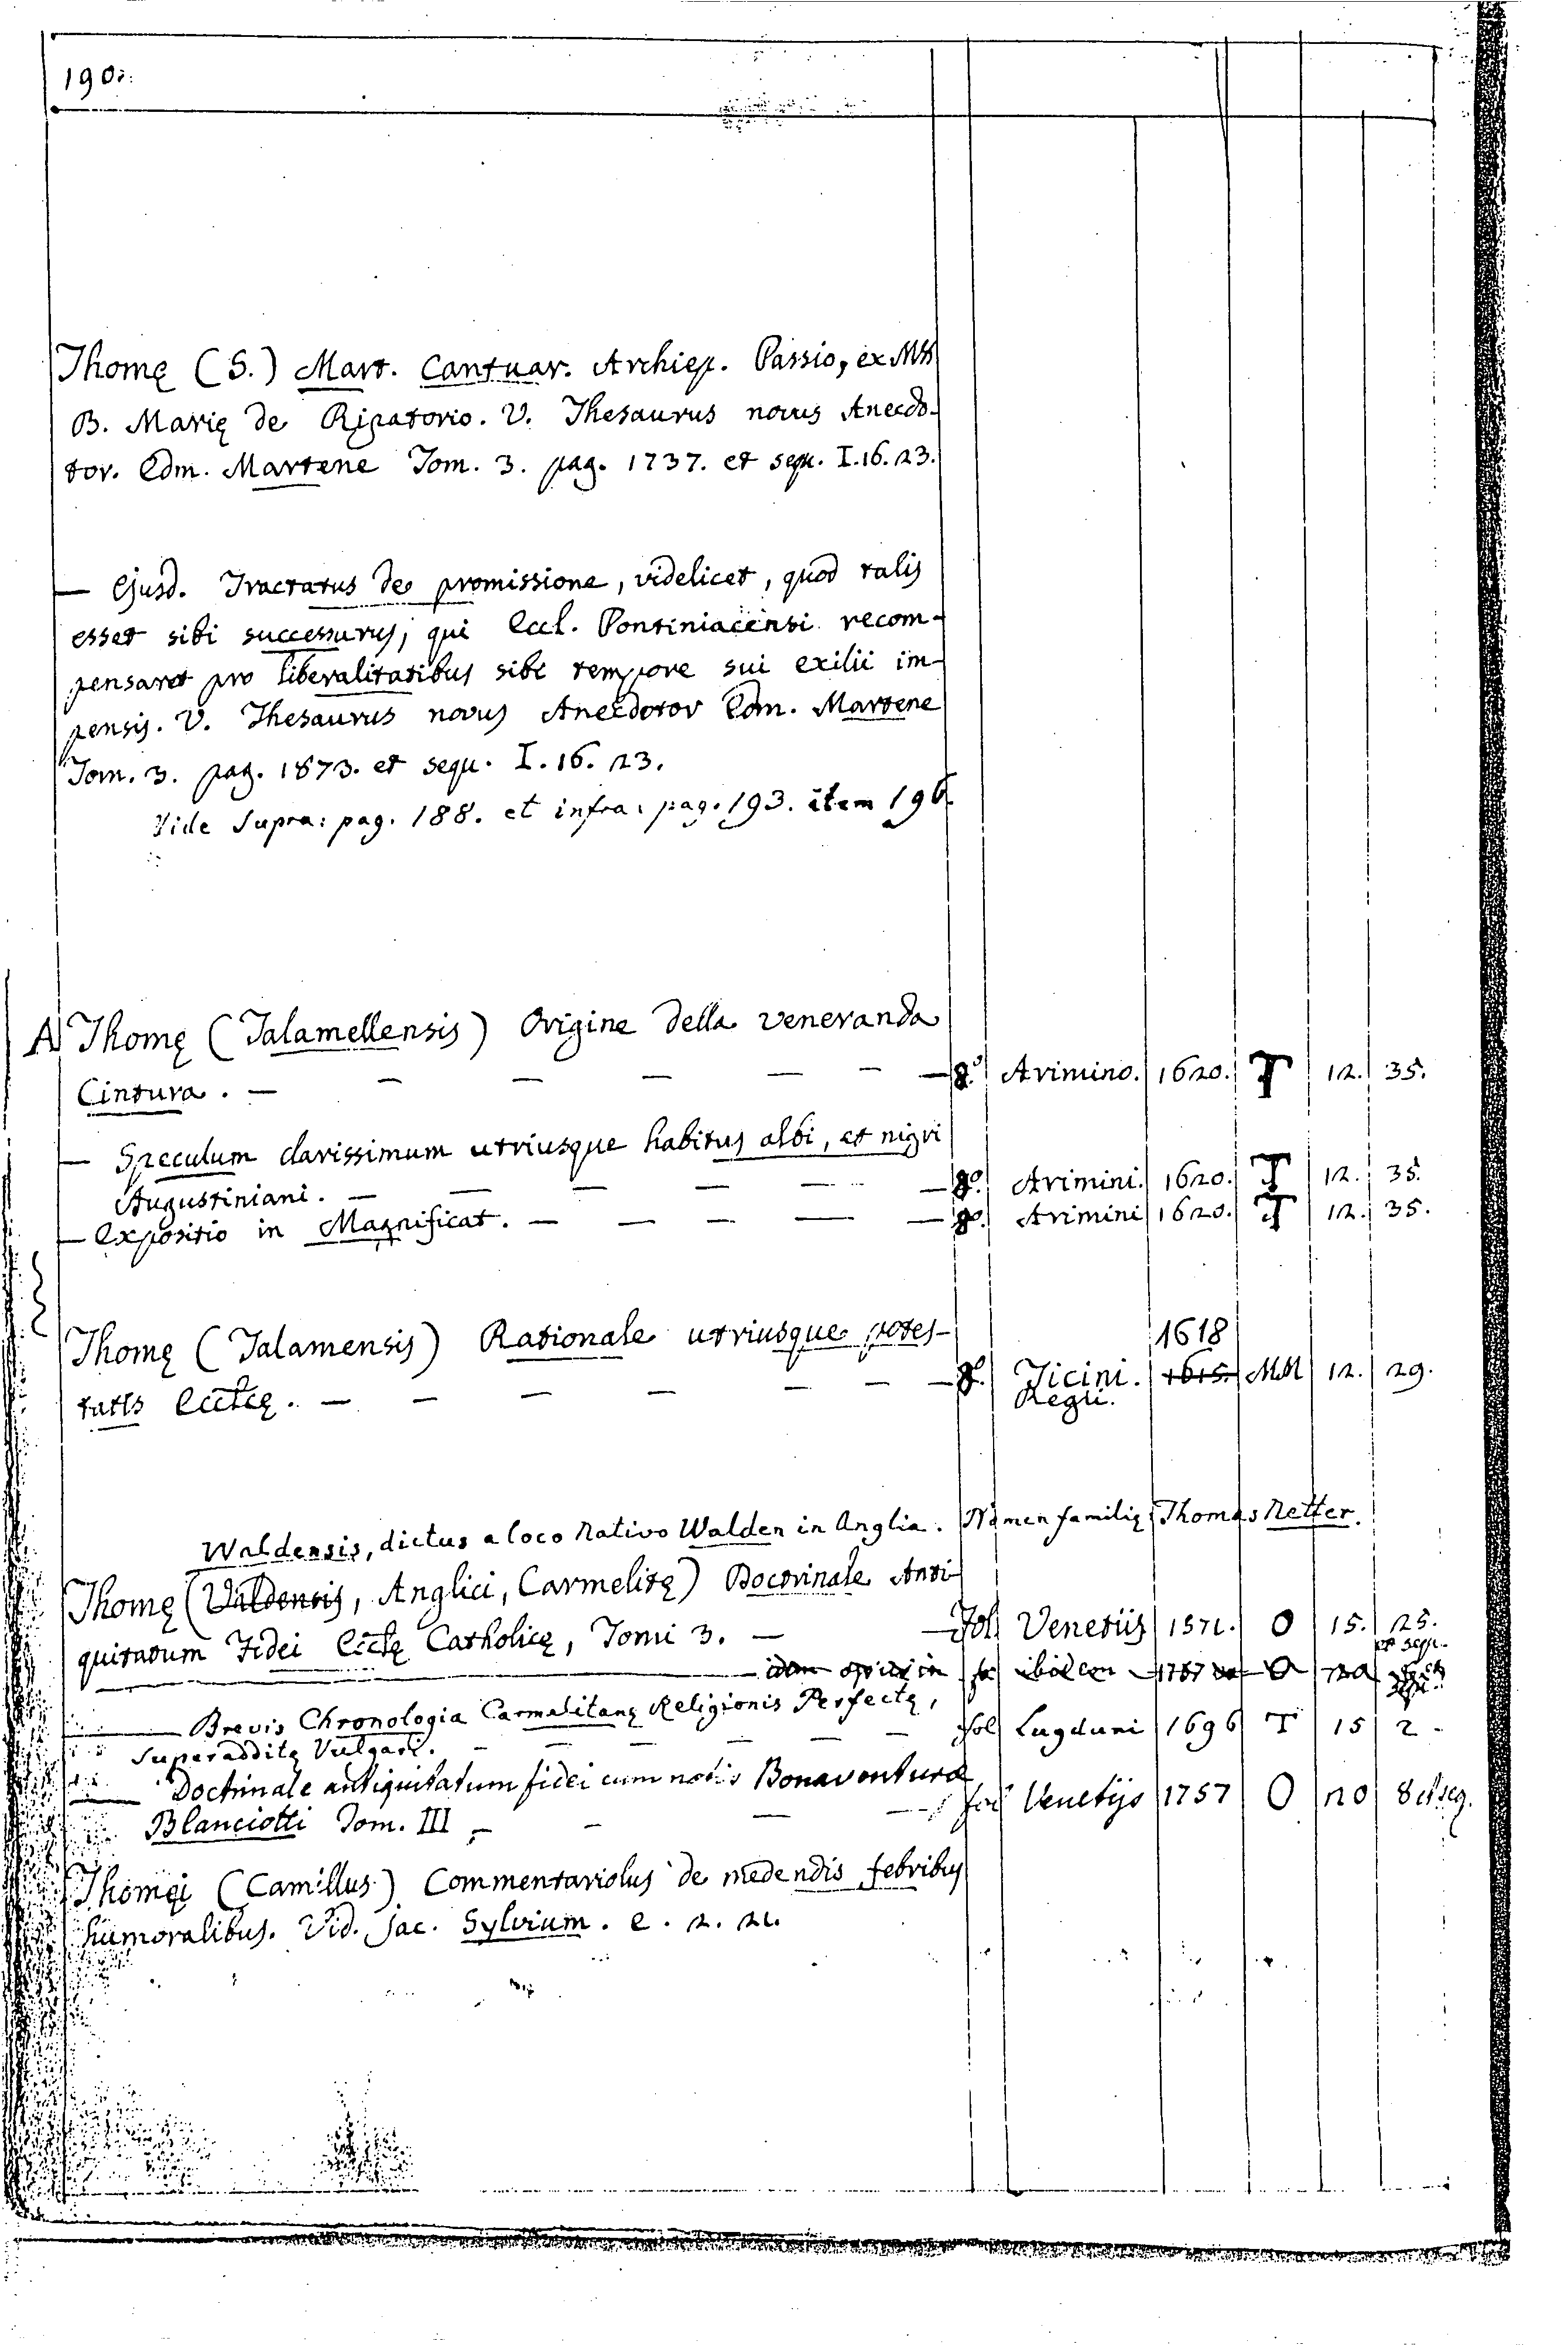 190.
Thomę (S.) Mart. Cantuar. Archiep. Passio, ex MSS
B. Marię de Ripatorio. V. Thesaurus novus Anecdo-
tor. Edm. Martene Tom. 3. pag. 1737. et sequ. I. 16. 23.
— Ejusd. Tractatus de promissione, videlicet, quod talis
esset sibi successurus, qui Eccl. Pontiniacensi recom-
pensaret pro liberalitatibus sibi tempore sui exilii im-
pensis. V. Thesaurus novus Anecdotor Edm. Martene
Tom. 3. pag. 1873. et sequ. I. 16. 23.
Vide Supra: pag. 188. et infra: pag. 193. item 196.
A Thomę (Talamellensis) Origine della veneranda
Cintura. — — — — — — — 8.º Arimino. 1620. T 12. 35.
— Speculum clarissimum utriusque habitus albi, et nigri
Augustiniani. — — — — — — 8º. Arimini. 1620. T 12. 35.
— Expositio in Magnificat. — — — — — 8º. Arimini 1620. T 12. 35.
Thomę (Talamensis) Rationale utriusque potes- 1618
tatis Ecclę. — — — — — — — 8º. Ticini. 1615. MM 12. 29.
Regii.
Waldensis, dictus a loco nativo Walden in Anglia. Nomen familię Thomas Netter.
Thomę (Valdensis, Anglici, Carmelitę) Doctrinale Anti-
quitatum Fidei Ecclę Catholicę, Tomi 3. — — Fol. Venetiis 1571. O 15. 25.
et sequ.
idem opus in fo ibidem 1757 O 20
— Brevis Chronologia Carmelitanę Religionis Perfectę,
superadditę Vulgari. — — — — — fol Lugduni 1696 T 15 2 -
— Doctrinale antiquitatum fidei cum notis Bonaventura
Blanciotti Tom. III — — — — fol Venetijs 1757 O 20 8 et seq.
Thomęi (Camillus) Commentariolus de medendis febribus
humoralibus. Vid. Jac. Sylvium. e. 2. 21.